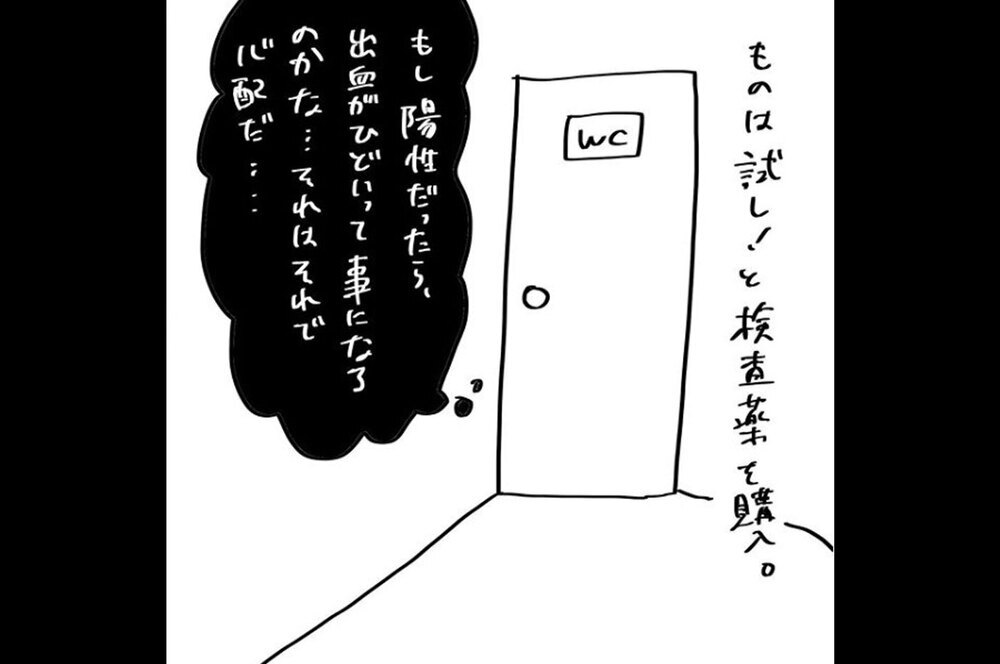 ものは試し!と検査薬を購入。
WC
もし陽性だったら、
出血がひどいって事になる
のかな…それはそれで
心配だ….